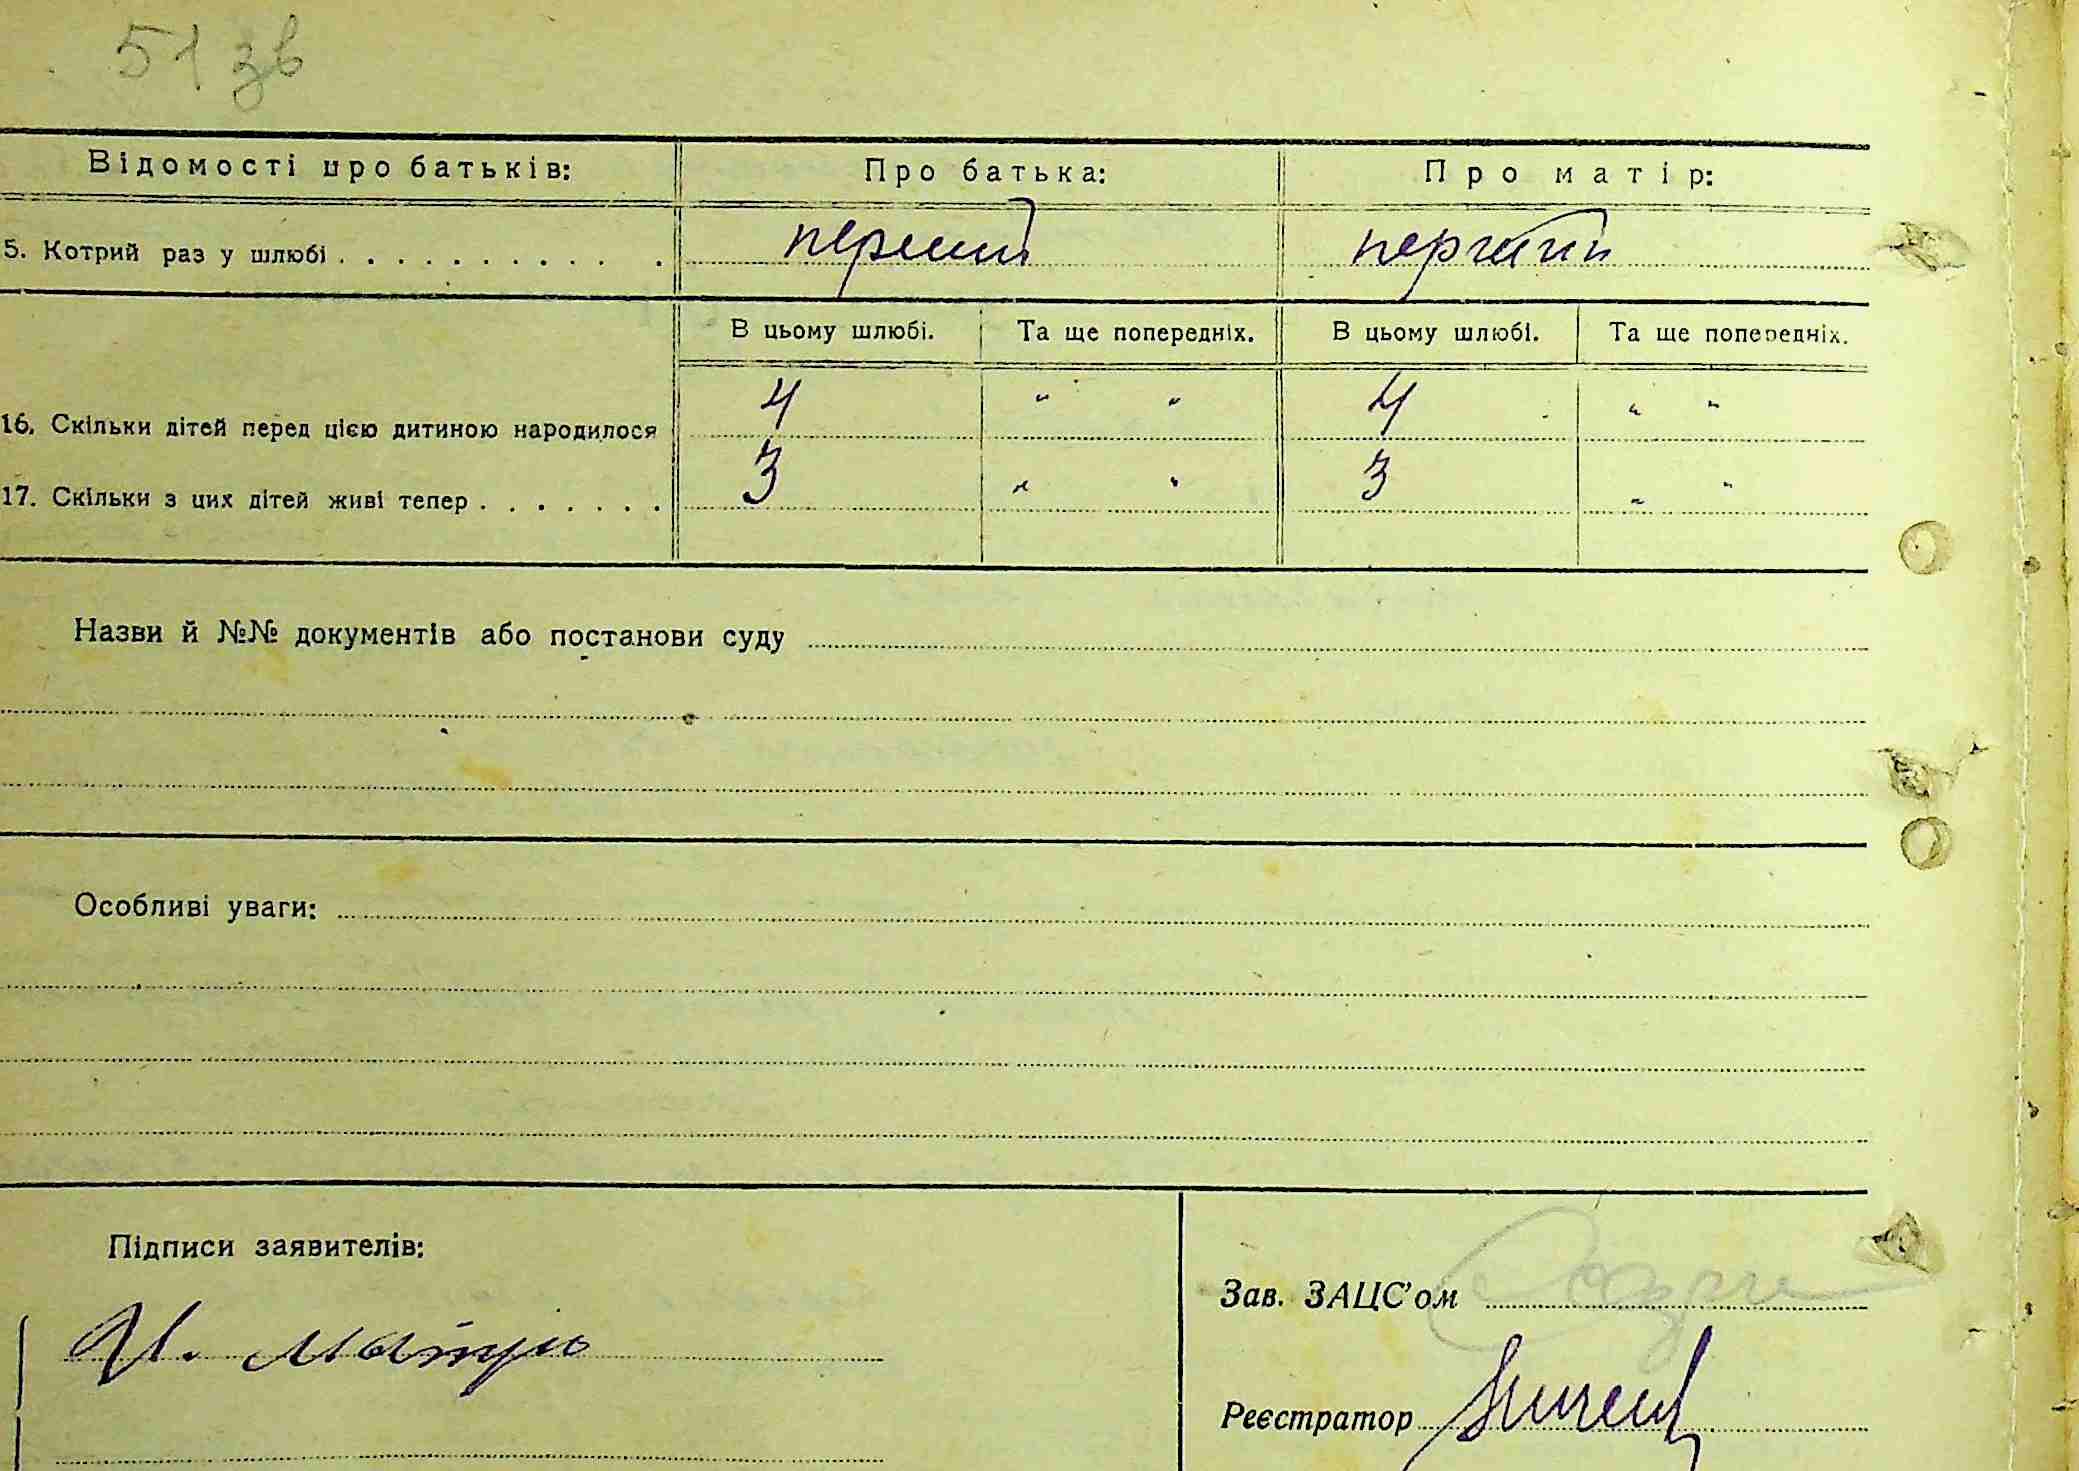 51 зв
Відомості про батьків: Про батька: Про матір:
5. Котрий раз у шлюбі . . . . . . . . . . . . перший перший
В цьому шлюбі. Та ще попередніх. В цьому шлюбі. Та ще попередніх.
16. Скільки дітей перед цією дитиною народилося 4 " " 4 " "
17. Скільки з цих дітей живі тепер . . . . . . . 3 " " 3 " "
Назви й №№ документів або постанови суду
Особливі уваги:
Підписи заявителів:
Зав. ЗАЦС'ом
Реєстратор